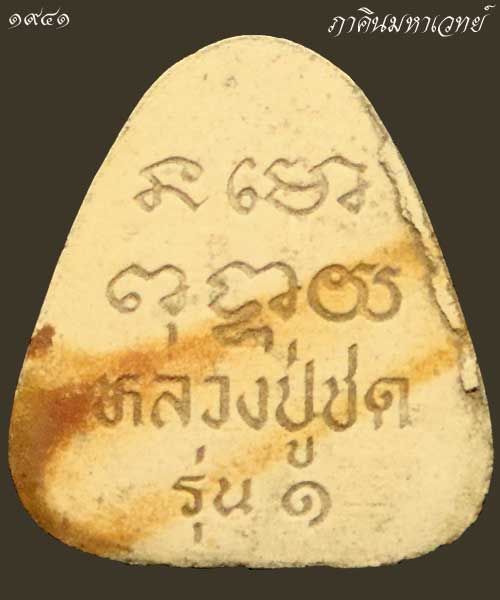 ๑๙๔๑
ภาคินมหาเวทย์
ន មោ
ពុ ទ្ធា យ
หลวงปู่ชด
รุ่น ๑